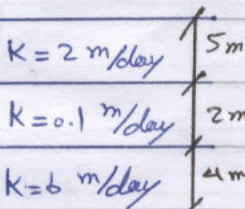 K = 2 m/day 5m
K = 0.1 m/day 2m
K = 6 m/day 4m